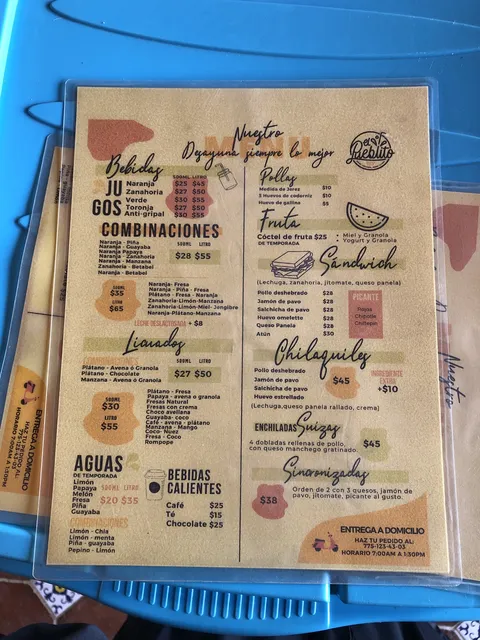 Nuestro
MENÚ
Desayuna siempre lo mejor
el Pueblito
Bebidas
JUGOS
500ML LITRO
Naranja $25 $45
Zanahoria $27 $50
Verde $30 $55
Toronja $27 $50
Anti-gripal $30 $55
COMBINACIONES
500ML LITRO
$28 $55
Naranja - Piña
Naranja - Guayaba
Naranja Papaya
Naranja - Zanahoria
Naranja - Manzana
Zanahoria - Betabel
Naranja - Betabel
500ML
$35
LITRO
$65
Naranja- Fresa
Naranja - Piña - Fresa
Plátano - Fresa - Naranja
Zanahoria-Limón-Miel
Zanahoria-Limón-Miel- Jengibre
Naranja-Plátano-Manzano
LECHE DESLACTOSADA + $8
Licuados
COMBINACIONES
500ML LITRO
Plátano - Avena ó Granola
Plátano - Chocolate
Manzana - Avena ó Granola
$27 $50
500ML
$30
LITRO
$55
Plátano - Fresa
Papaya - avena o granola
Fresas Natural
Fresas con crema
Choco avellana
Guayaba- coco
Café - avena - plátano
Manzana - Mango
Coco- Nuez
Fresa - Coco
Rompope
AGUAS
DE TEMPORADA
Limón
Papaya
Melón
Fresa
Piña
Guayaba
500ML LITRO
$20 $35
COMBINACIONES
Limón - Chia
Limón - menta
Piña - guayaba
Pepino - Limón
BEBIDAS
CALIENTES
Café $25
Té $15
Chocolate $25
Pollas
Medida de Jerez $10
2 Huevos de codorniz $10
Huevo de gallina $5
Fruta
Cóctel de fruta $25
DE TEMPORADA
+ Miel y Granola
+ Yogurt y Granola
Sándwich
(Lechuga, zanahoria, jitomate, queso panela)
Pollo deshebrado $28
Jamón de pavo $28
Salchicha de pavo $28
Huevo omeletto $28
Queso Panela $28
Atún $30
PICANTE
Rajas
Chipotle
Chiltepin
Chilaquiles
Pollo deshebrado
Jamón de pavo
Salchicha de pavo
Huevo estrellado
$45
INGREDIENTE
EXTRA
+$10
(Lechuga,queso panela rallado, crema)
ENCHILADAS Suizas
4 dobladas rellenas de pollo,
con queso manchego gratinado.
$45
Sincronizadas
$38
Orden de 2 con 3 quesos, jamón de
pavo, jitomate, picante al gusto.
ENTREGA A DOMICILIO
HAZ TU PEDIDO AL:
775-123-43-03
HORARIO 7:00AM A 1:30PM
ENTREGA A DOMICILIO
HAZ TU PEDIDO AL:
HORARIO 7:00AM A 1:30PM
Nuestro